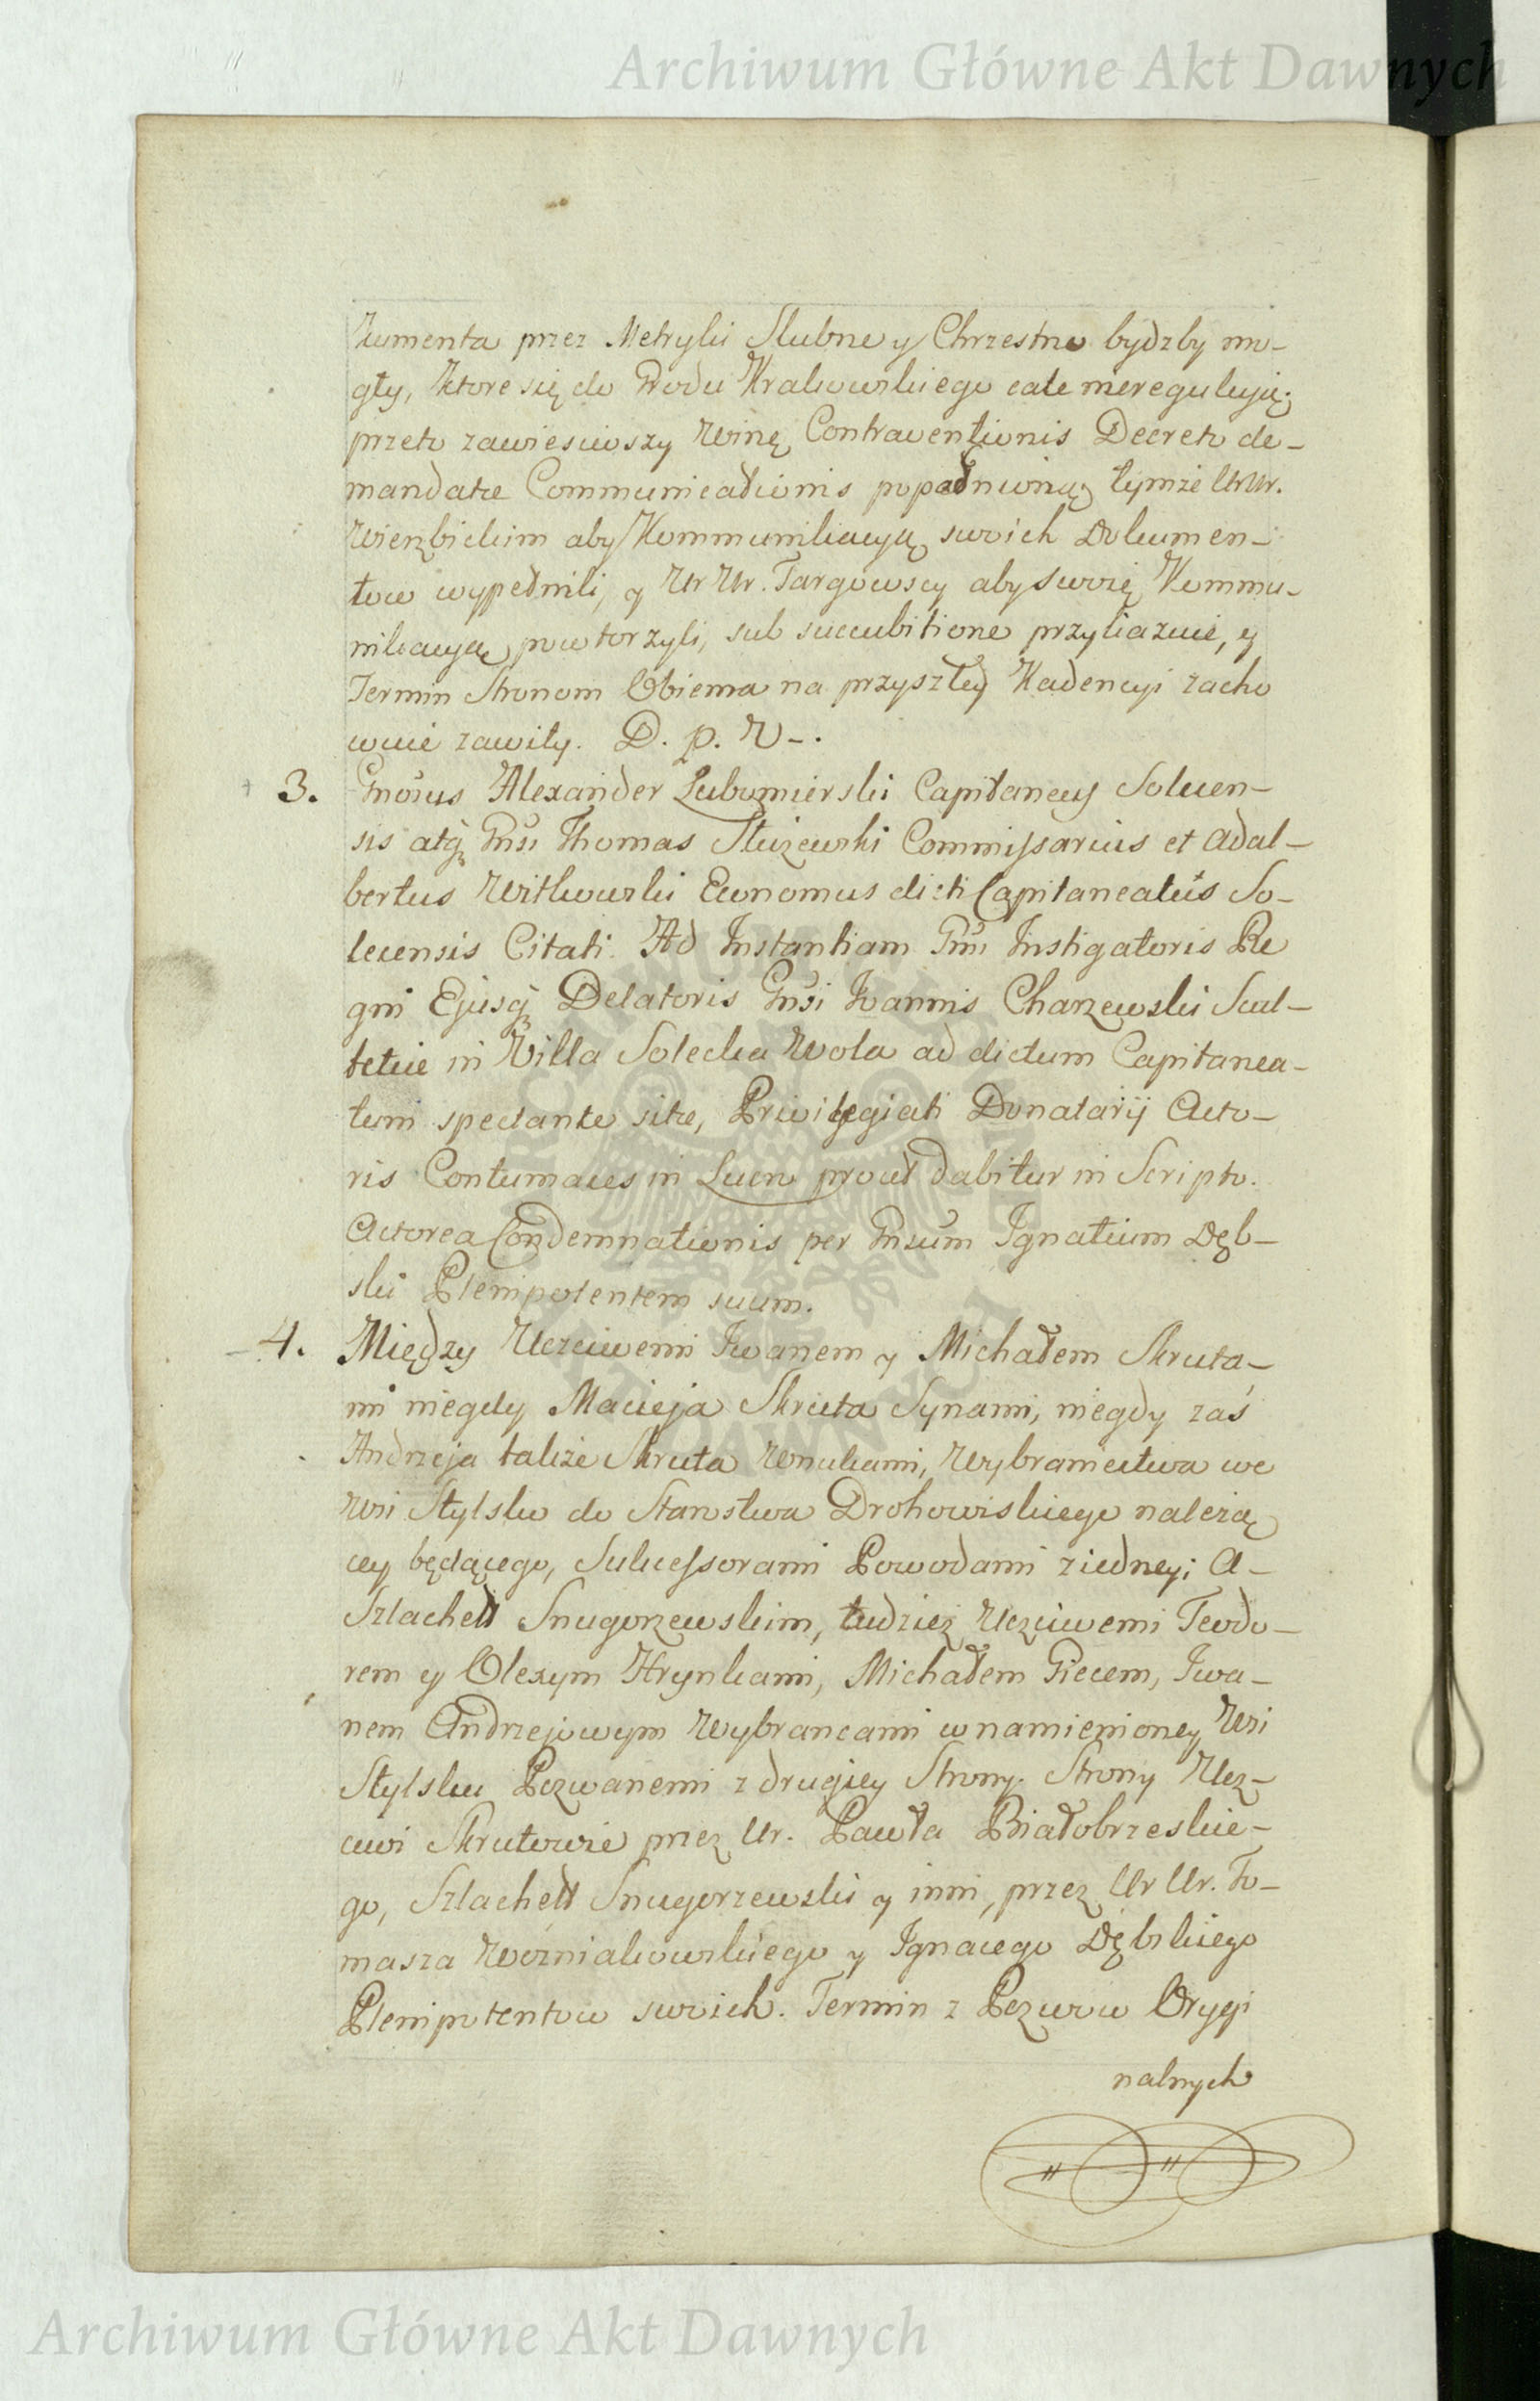 Archiwum Główne Akt Dawnych
kumenta przez Metryki Slubne y Chrzestne bydzby mo-
gły, ktore się do Grodu Krakowskiego cale nieregulują;
przeto zawiesiwszy winę Contraventionis Decreto de-
mandatæ Communicationis popadnioną tymże UrUr.
Wierzbickim aby Kommunikacyą swoich Dokumen-
tow wypełnili, y Ur Ur. Targowscy aby swoię Kommu-
nikacyą powtorzyli, sub succubitione przykazuie, y
Termin Stronom Obiema na przyszłey Kadencyi zacho
wuie zawity. D. p. R-.
3. Gnosus Alexander Lubomierski Capitaneus Solecen-
sis atq Gnsi Thomas Służewski Commissarius et Adal-
bertus Witkowski Economus dicti Capitaneatus So-
lecensis Citati. Ad Instantiam Gnsi Instigatoris Re
gni Ejusq Delatoris Gnsi Ioannis Charzewski Scul-
tetiæ in Villa Solecka Wola ad dictum Capitanea-
tum spectante sitæ, Privilegiati Donatarij Acto-
ris Contumaces in Lucro prout dabitur in Scripto.
Actorea Condemnationis per Gnsum Ignatium Dęb-
ski Plenipotentem suum.
4. Między Uczciwemi Iwanem y Michałem Skruta-
mi niegdy Macieja Skruta Synami, niegdy zaś
Andrzeja także Skruta Wnukami, Wybraniectwa we
Wsi Stylsku do Starostwa Drohowiskiego należą
cey będącego, Sukcessorami Powodami z iedney; A-
Szlachett Snugorzewskim, tudzież Uczciwemi Teodo-
rem y Olexym Hrynkami, Michałem Giecem, Iwa-
nem Andrzejowym Wybrancami w namienioney Wsi
Stylsku Pozwanemi z drugiey Strony. Strony Ucz-
ciwi Skrutowie przez Ur. Pawła Białobrzeskie-
go, Szlachett Snugorzewski y inni, przez Ur Ur. To-
masza Wozniakowskiego y Ignacego Dębskiego
Plenipotentow swoich. Termin z Pozwow Orygi
nalnych
Archiwum Główne Akt Dawnych